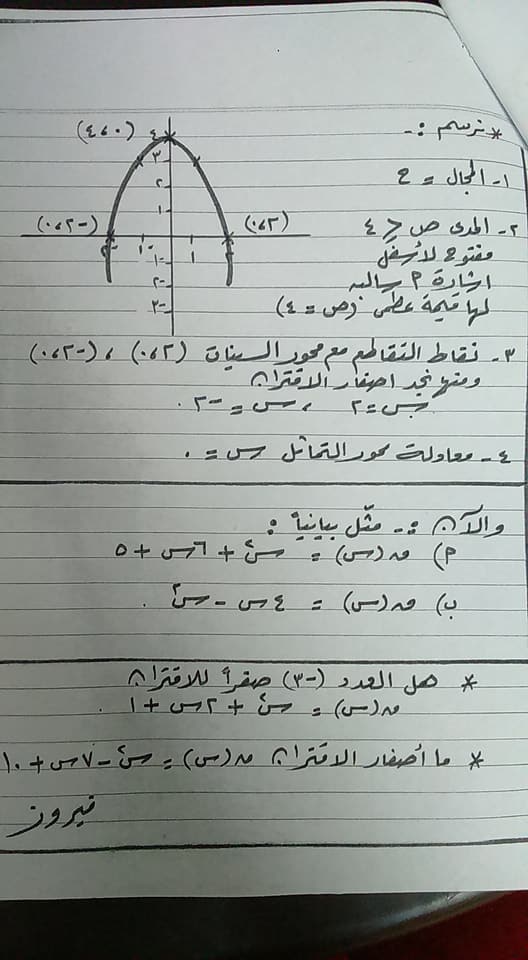 * نرسم :-
١- المجال = ح
٢- المدى ص ≤ ٤
مفتوح لأسفل
اشارة م سالبه
لها قيمة عظمى (ص = ٤)
(٤،٠)
٤
٣
٢
١
(٠،٢-)
(٠،٢)
٢-
١-
١
٢
١-
٢-
٣-
٣- نقاط التقاطع مع محور السينات (٠،٢) ، (٠،٢-)
ومنها نجد اصفار الاقتران
س = ٢ ، س = -٢ .
٤- معادلة محور التماثل س = ٠
والآن :- مثّل بيانياً :
م) ق(س) = س² + ٦س + ٥
ب) ق(س) = ٤س - س² .
* هل العدد (-٣) صفراً للاقتران
ق(س) = س² + ٢س + ١ .
* ما أصفار الاقتران ق(س) = س² - ٧س + ١٠
نيروز